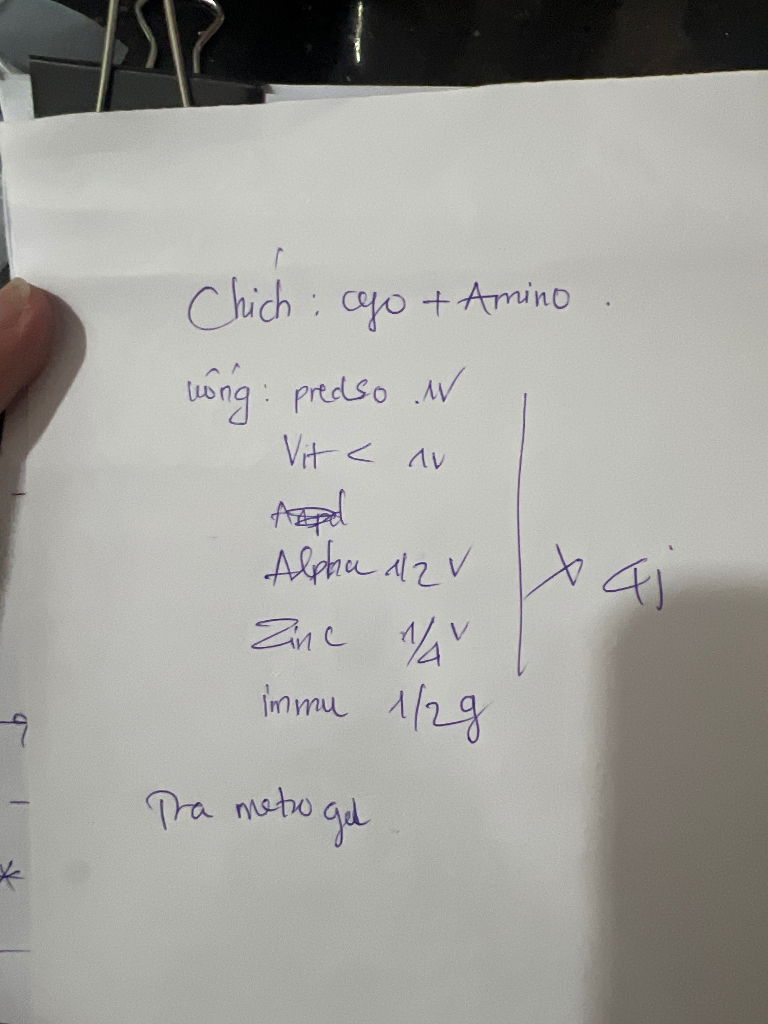 Chích: cyo + Amino.
uống: predso 1V
Vit C 1V
Alpha 1/2 V
Zinc 1/4 V
immu 1/2 g
x 4j
Tra metrogel